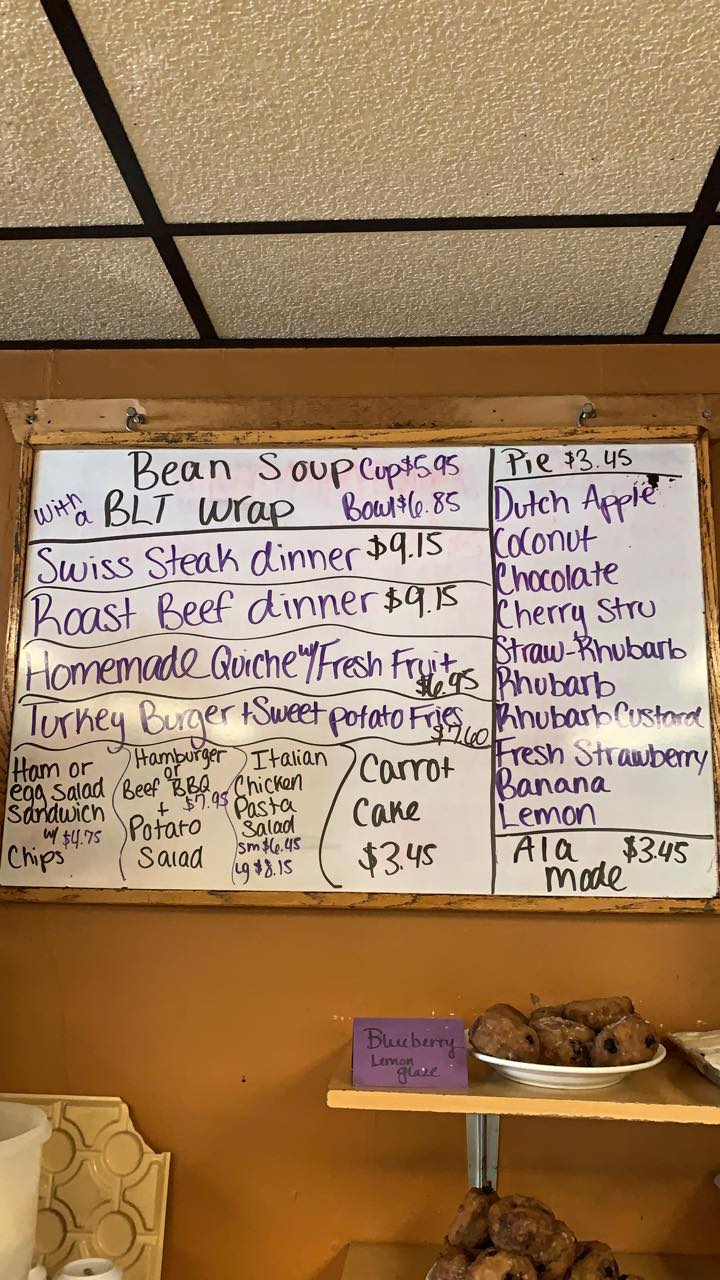 Bean Soup Cup $5.95
with a BLT Wrap Bowl $6.85
Swiss Steak dinner $9.15
Roast Beef dinner $9.15
Homemade Quiche w/ Fresh Fruit
$6.95
Turkey Burger + Sweet potato Fries
$7.60
Ham or
egg Salad
Sandwich
w/ $4.75
Chips
Hamburger
or
Beef BBQ
+ $7.95
Potato
Salad
Italian
Chicken
Pasta
Salad
sm $6.45
lg $8.15
Carrot
Cake
$3.45
Pie $3.45
Dutch Apple
Coconut
Chocolate
Cherry Stru
Straw-Rhubarb
Rhubarb
Rhubarb Custard
Fresh Strawberry
Banana
Lemon
Ala $3.45
Mode
Blueberry
Lemon
glaze